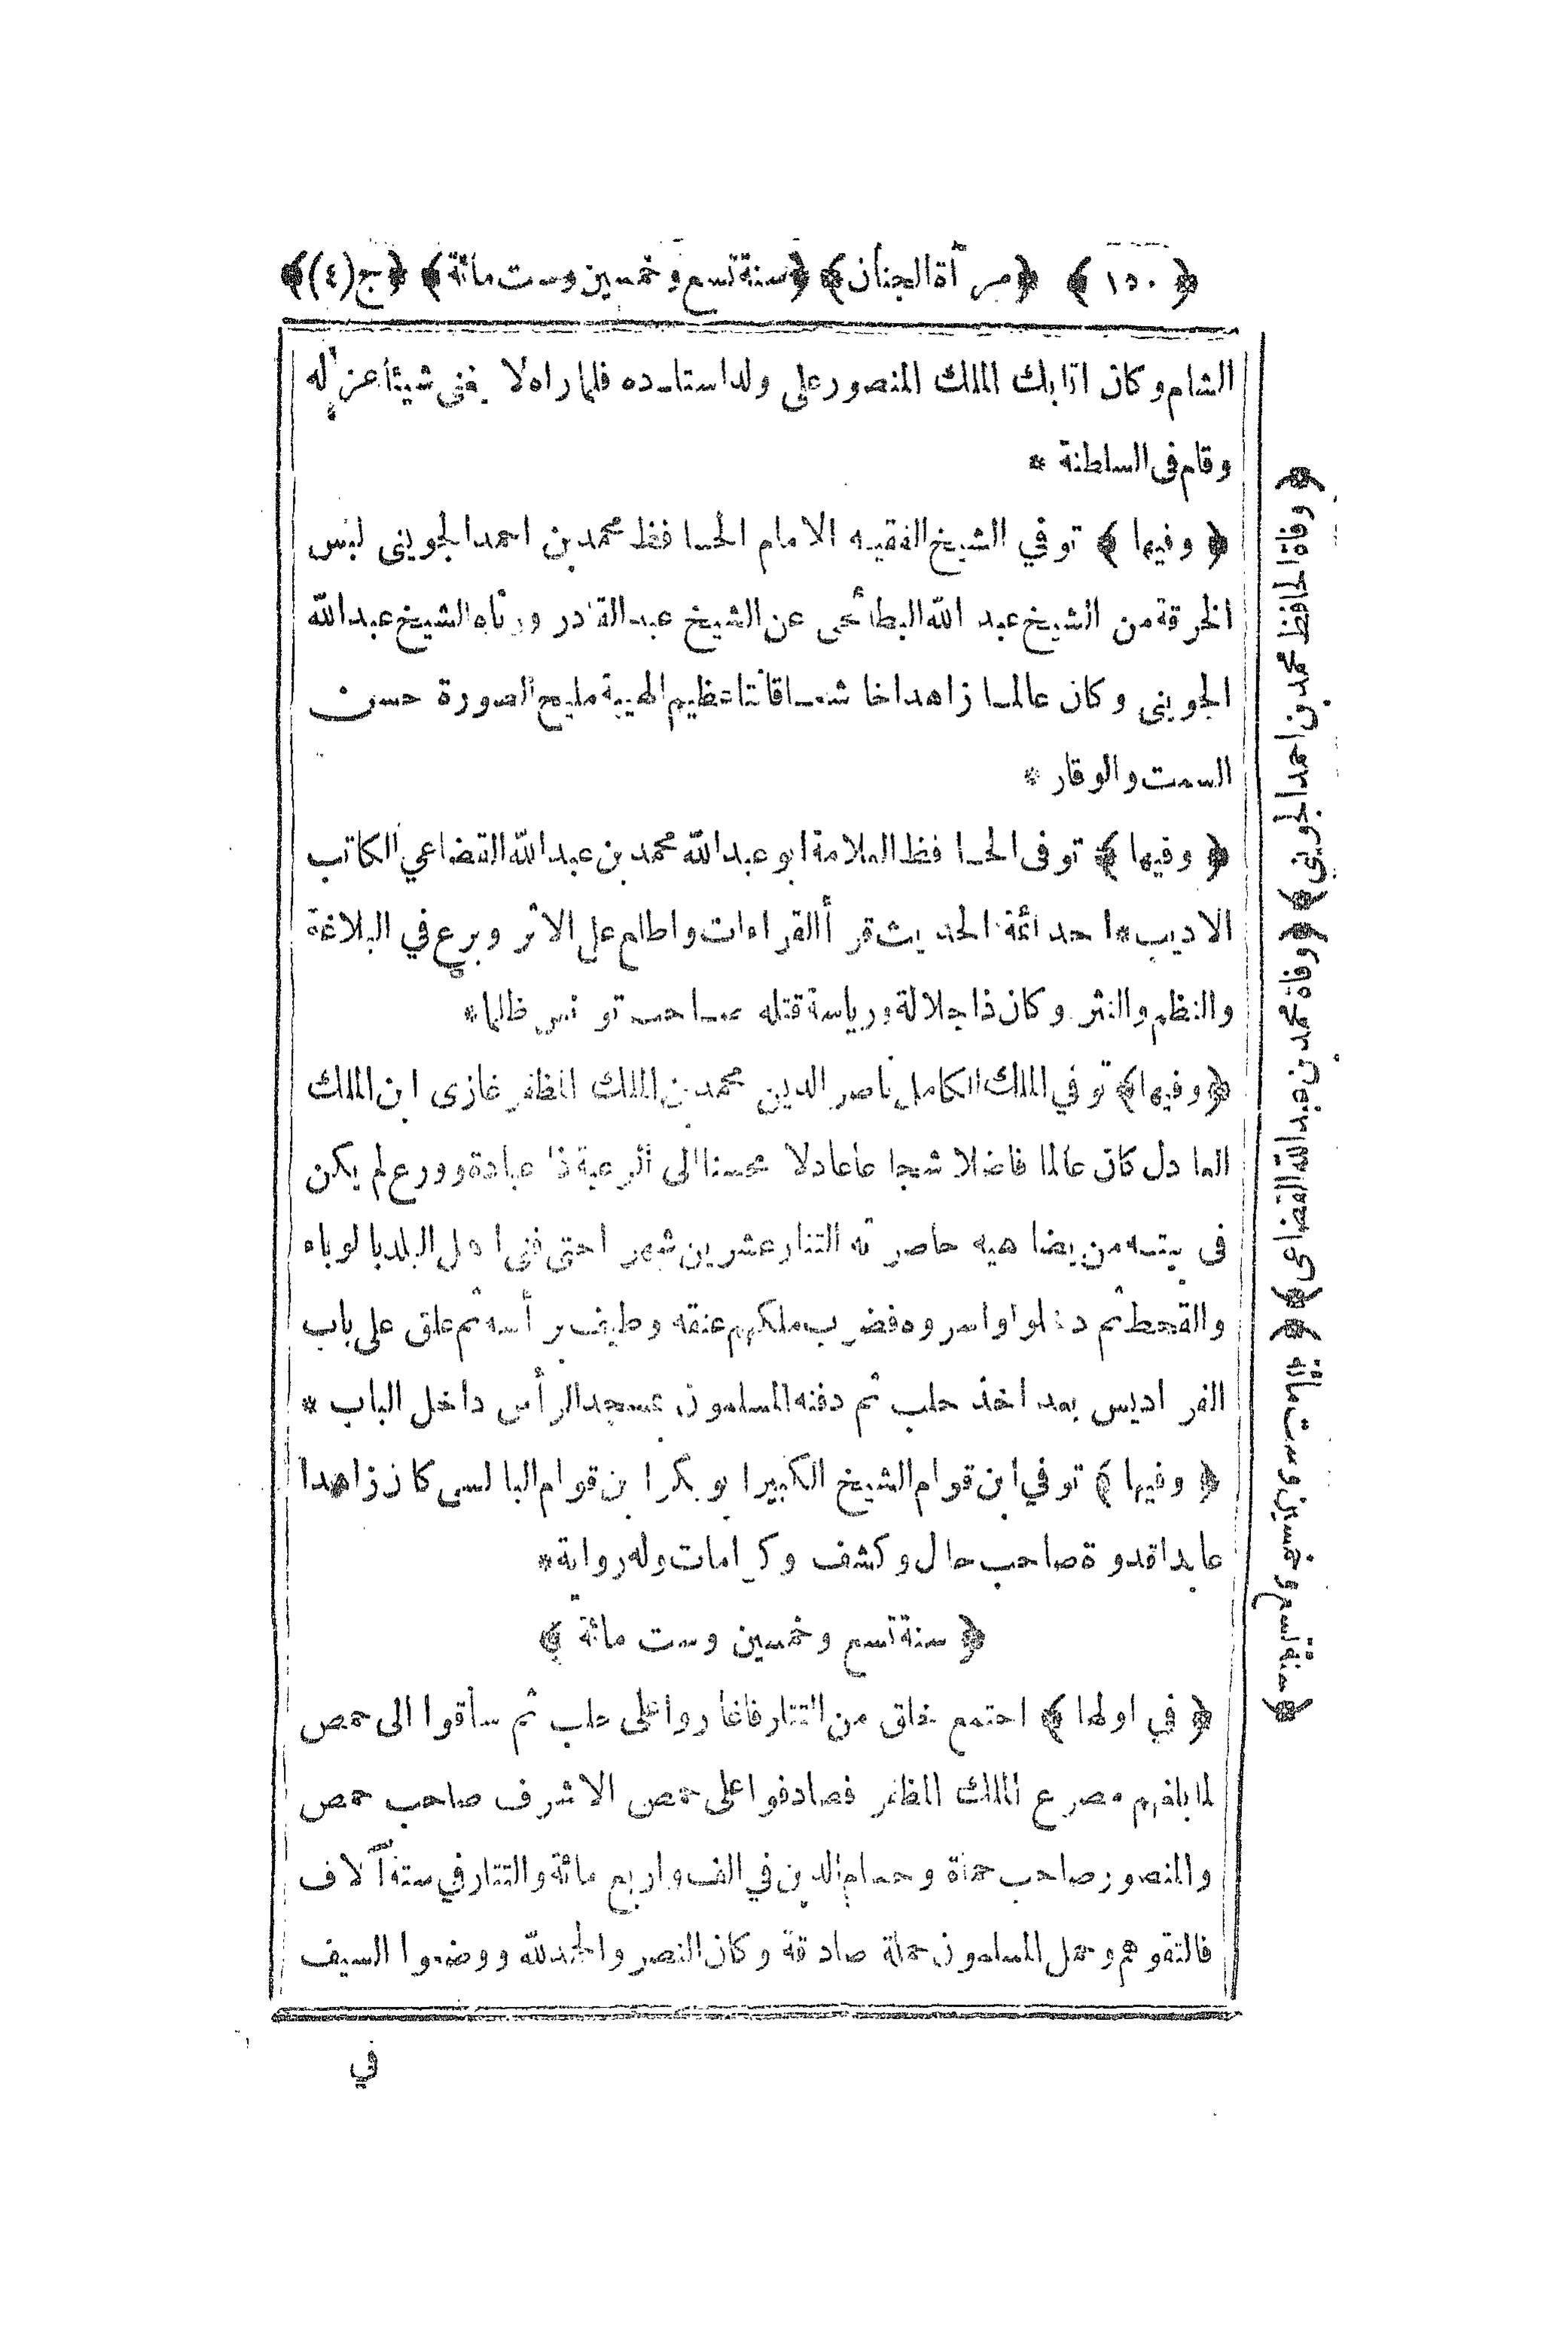 ﴿ ١٥٠ ﴾ ﴿مرأة الجنان﴾ ﴿سنة تسع وخمسين وست مائة﴾ ﴿ج(٤)﴾
الشام وكان اتابك الملك المنصور على ولد استاده فلما راه لا يغنى شيئا عزله
وقام فى السلطنة *
﴿ وفيها ﴾ توفي الشيخ الفقيه الامام الحافظ محمد بن احمد الجوينى لبس
الخرقة من الشيخ عبد الله البطائحى عن الشيخ عبد القادر ورباه الشيخ عبد الله
الجوينى وكان عالما زاهدا خاشعا قانتا عظيم الهيبة مليح الصورة حسن
السمت والوقار *
﴿ وفيها ﴾ توفى الحافظ العلامة ابو عبد الله محمد بن عبد الله القضاعي الكاتب
الاديب * احد ائمة الحديث قرأ القراءات واطلع على الاثر وبرع في البلاغة
والنظم والنثر وكان ذا جلالة ورياسة قتله صاحب تونس ظلما *
﴿وفيها﴾ توفي الملك الكامل ناصر الدين محمد بن الملك المظفر غازى ابن الملك
العادل كان عالما فاضلا شجاعا عادلا محسنا الى الرعية ذا عبادة وورع لم يكن
فى بيته من يضاهيه حاصرته التتار عشرين شهرا حتى فنى اهل البلد بالوباء
والقحط ثم دخلوا واسروه فضرب ملكهم عنقه وطيف برأسه ثم علق على باب
الفراديس بعد اخذ حلب ثم دفنه المسلمون بمسجد الرأس داخل الباب *
﴿ وفيها ﴾ توفي ابن قوام الشيخ الكبير ابو بكر ابن قوام البالسى كان زاهدا
عابدا قدوة صاحب حال وكشف وكرامات وله رواية *
﴿ سنة تسع وخمسين وست مائة ﴾
﴿ في اولها ﴾ اجتمع خلق من التتار فاغاروا على حلب ثم ساقوا الى حمص
لما بلغهم مصرع الملك المظفر فصادفوا على حمص الاشرف صاحب حمص
والمنصور صاحب حماة وحسام الدين في الف واربع مائة والتتار في ستة آلاف
فالتقوهم وحمل المسلمون حملة صادقة وكان النصر والحمد لله ووضعوا السيف
في
﴿ وفاة الحافظ محمد بن احمد الجويني ﴾ ﴿ وفاة محمد بن عبد الله القضاعى ﴾ ﴿ سنة تسع وخمسين وست مائة ﴾